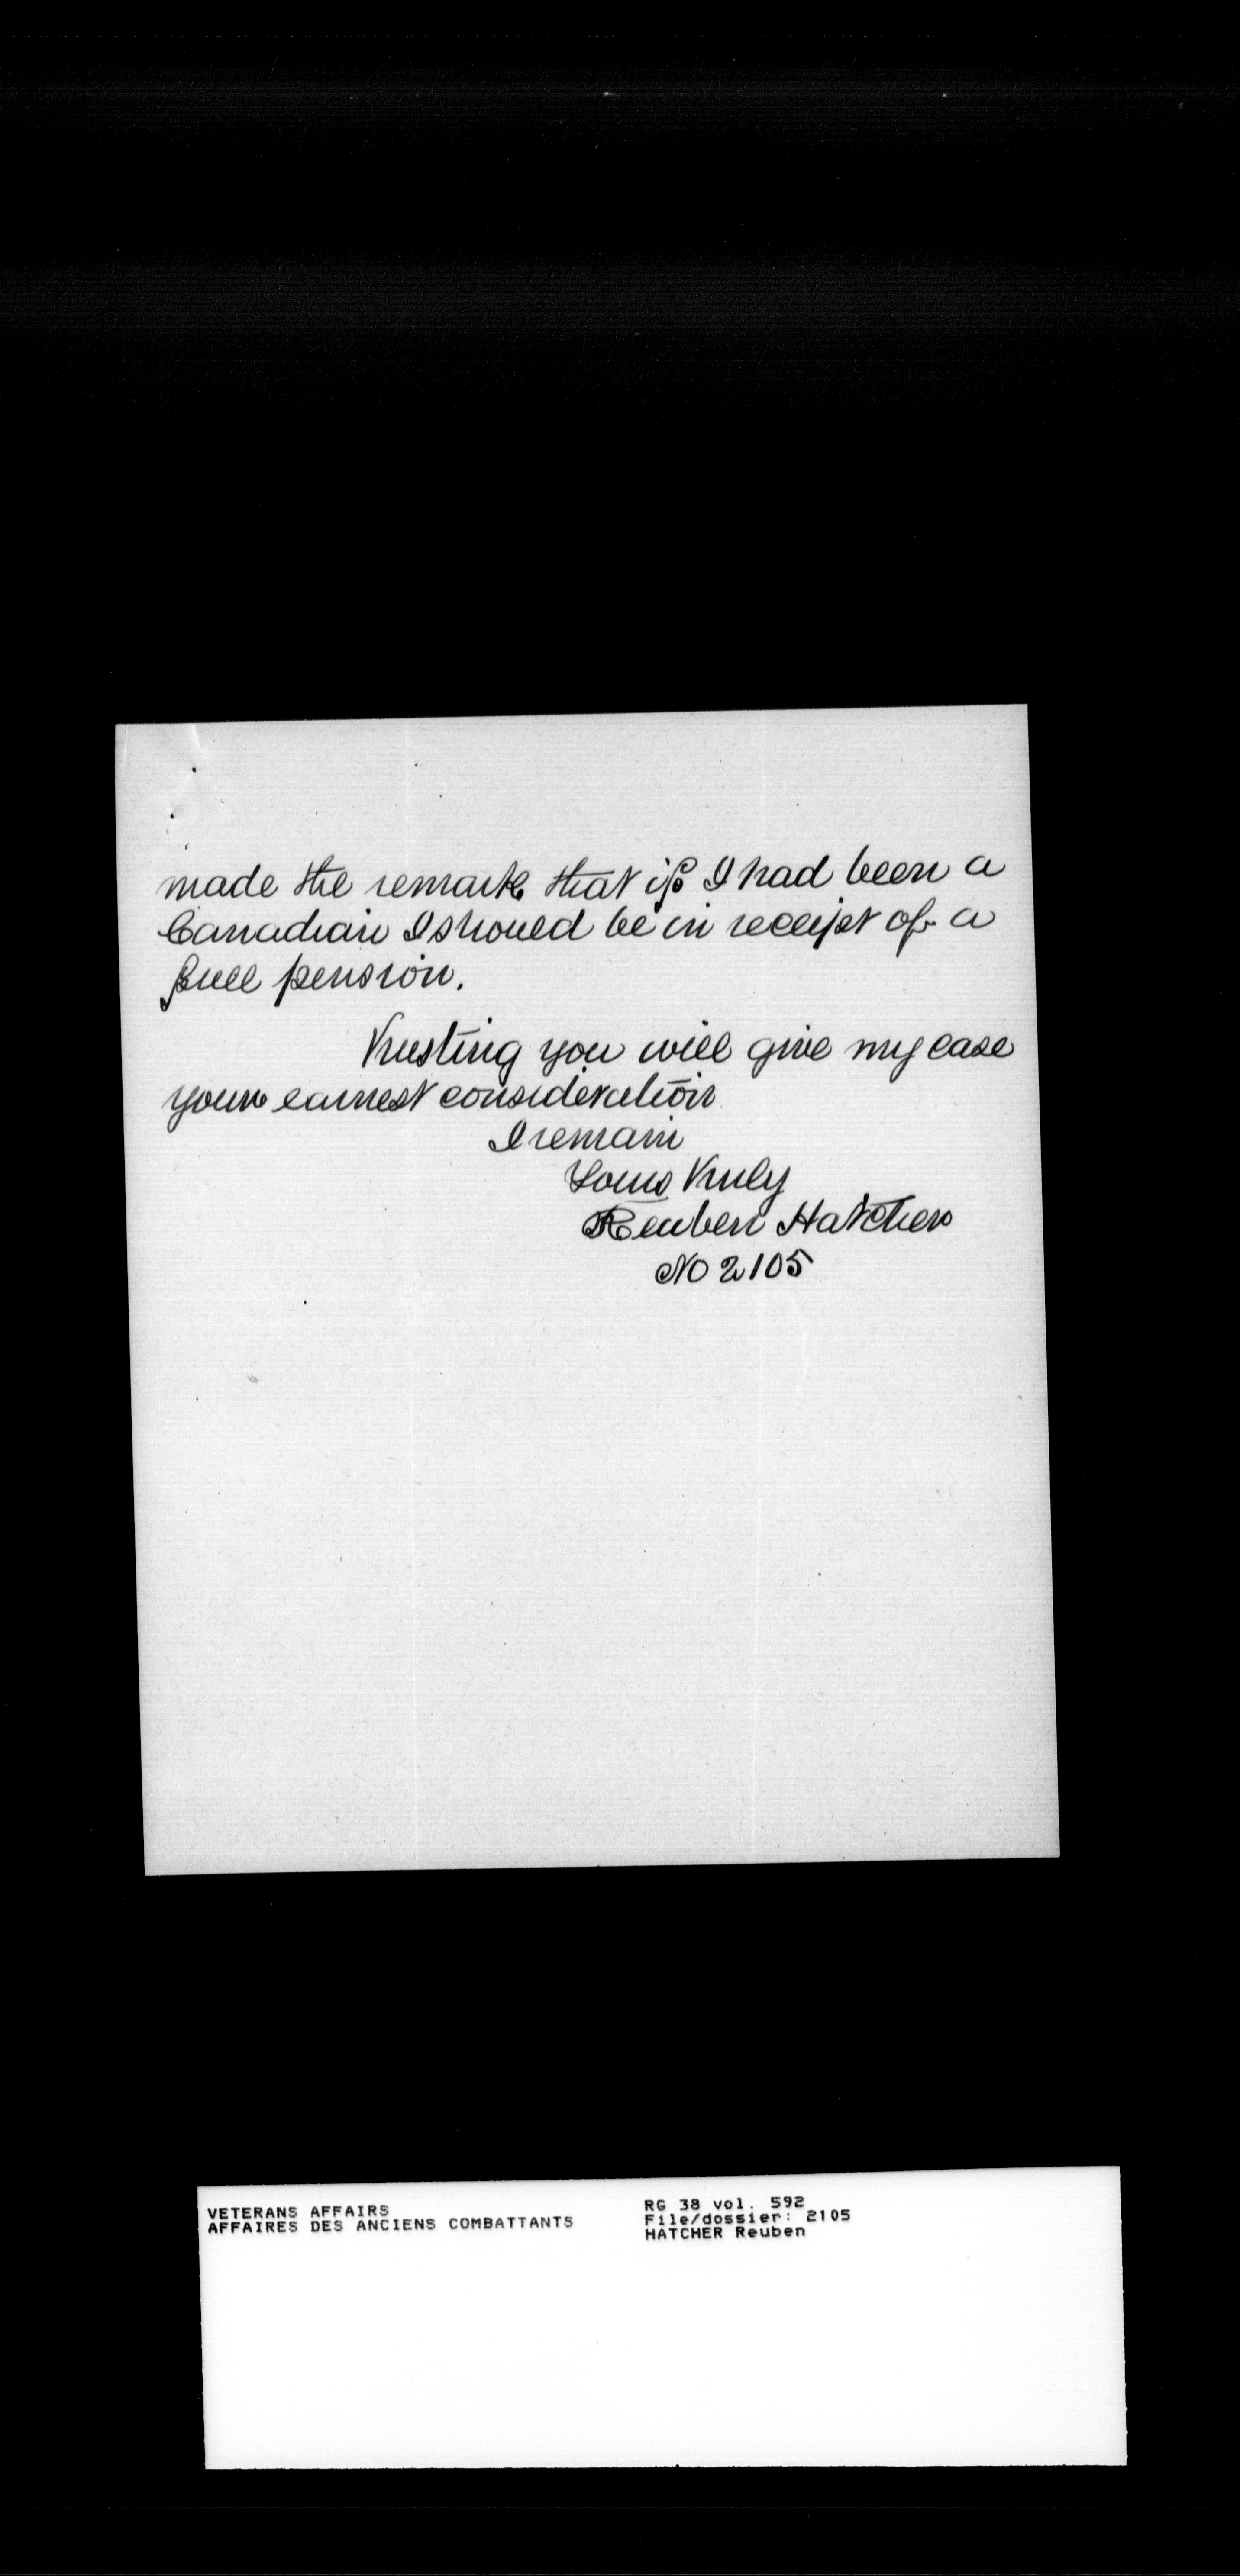 made the remark that if I had been a
Canadian I should be in receipt of a
full pension.
Trusting you will give my case
your earnest consideration
I remain
Yours Truly
Reuben Hatcher
No 2105
VETERANS AFFAIRS
AFFAIRES DES ANCIENS COMBATTANTS
RG 38 vol. 592
File/dossier: 2105
HATCHER Reuben